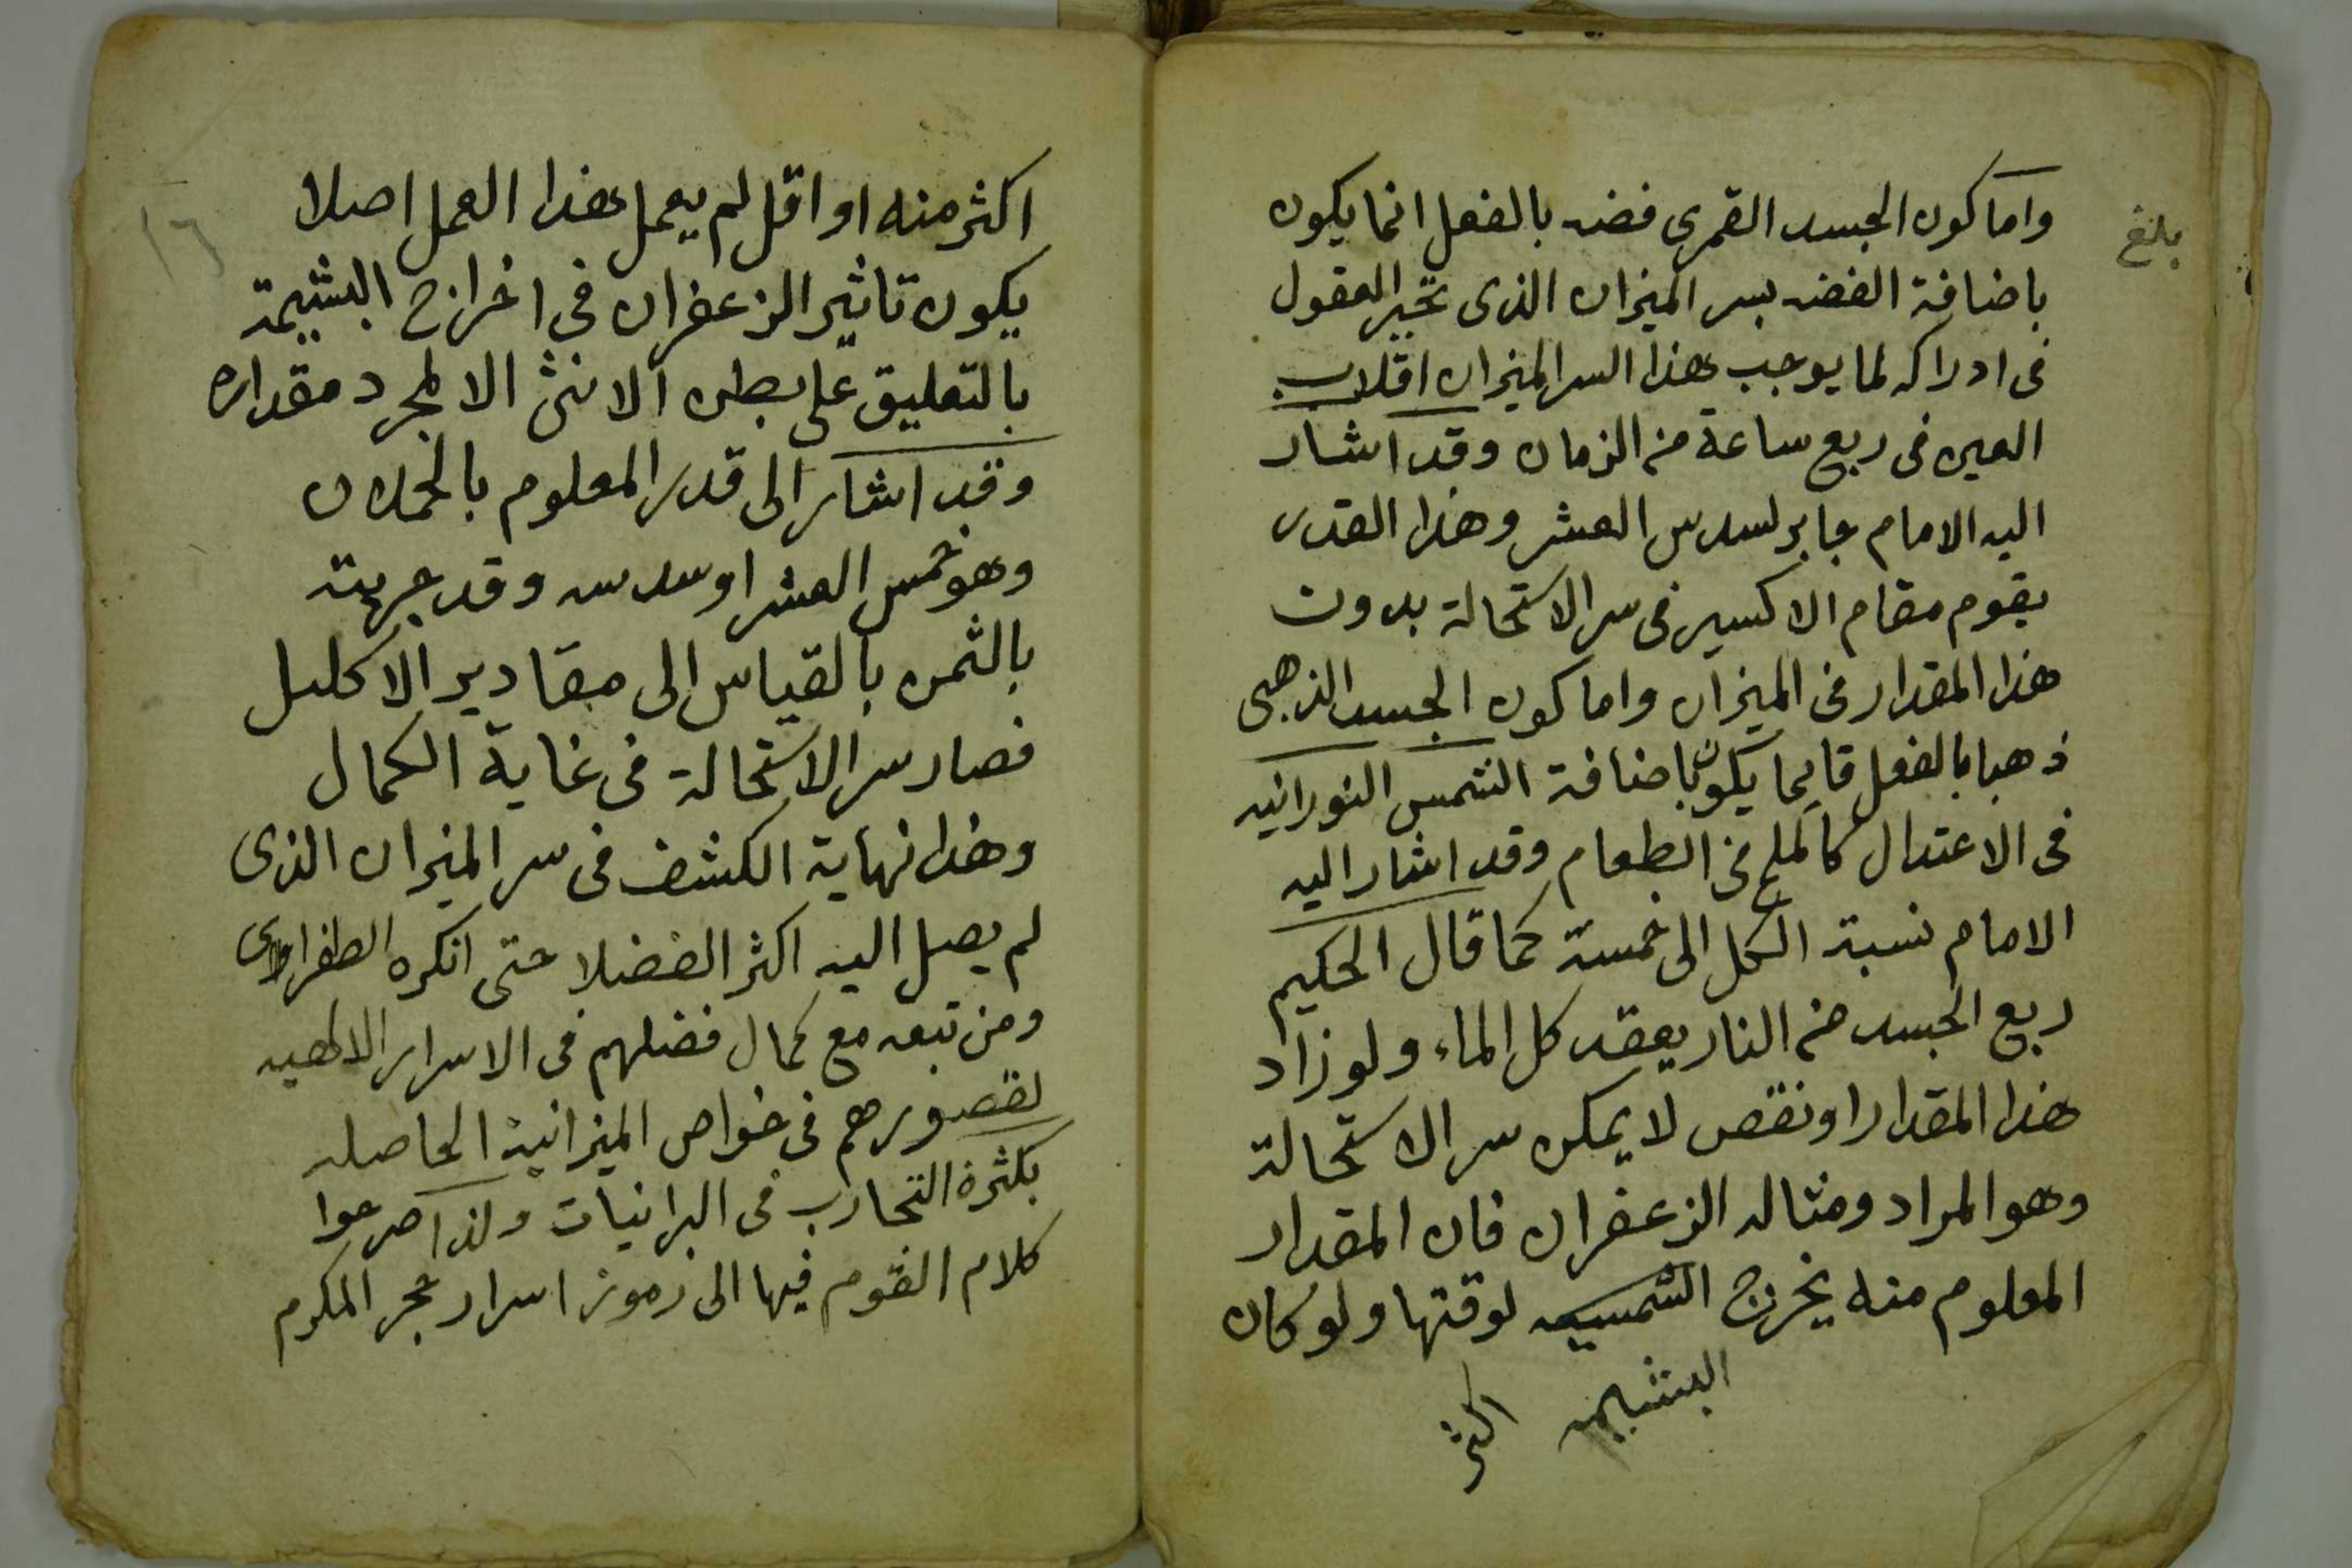 بلغ
واما كون الجسد القمرى فضه بالفعل انما يكون
باضافة الفضه بسر الميزان الذى تحير العقول
فى ادراكه لما يوجب هذا السر الميزان اقلاب
العين فى ربع ساعة من الزمان وقد اشار
اليه الامام جابر لسدس العشر وهذا القدر
يقوم مقام الاكسير فى سر الاستحالة بدون
هذا المقدار فى الميزان واما كون الجسد الذهبى
ذهبا بالفعل قايما يكون باضافة الشمس النورانيه
فى الاعتدال كالملح فى الطعام وقد اشار اليه
الامام نسبة الكل الى خمسة كما قال الحكيم
ربع الجسد من النار يعقد كل الماء ولو زاد
هذا المقدار او نقص لا يمكن سر الاستحالة
وهو المراد ومثاله الزعفران فان المقدار
المعلوم منه يخرج لوقتها ولو كان
البشيمه اكثر
١٦
اكثر منه او اقل لم يعمل هذا العمل اصلا
يكون تاثير الزعفران فى اخراج البشيمة
بالتعليق على بطن الانثى الا لمجرد مقداره
وقد اشار الى قدر المعلوم بالحملان
وهو خمس العشر او سدسه وقد جربته
بالثمن بالقياس الى مقادير الاكليل
فصار سر الاستحالة فى غاية الكمال
وهذا نهاية الكشف فى سر الميزان الذى
لم يصل اليه اكثر الفضلا حتى انكره الطغراوى
ومن تبعه مع كمال فضلهم فى الاسرار الالهيه
لقصورهم فى خواص الميزانية الحاصله
بكثرة التجارب فى البرانيات ولذا صرعوا
كلام القوم فيها الى رموز اسرار حجر المكرم